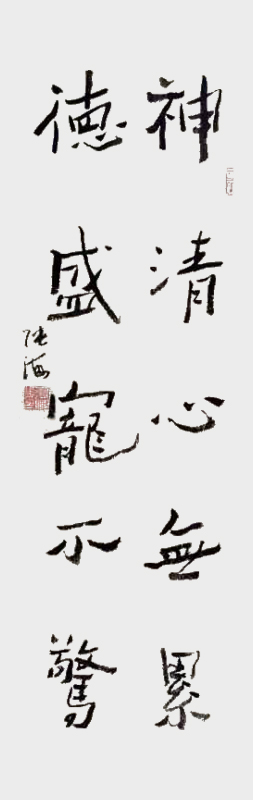 神清心無累
德盛寵不驚
张海